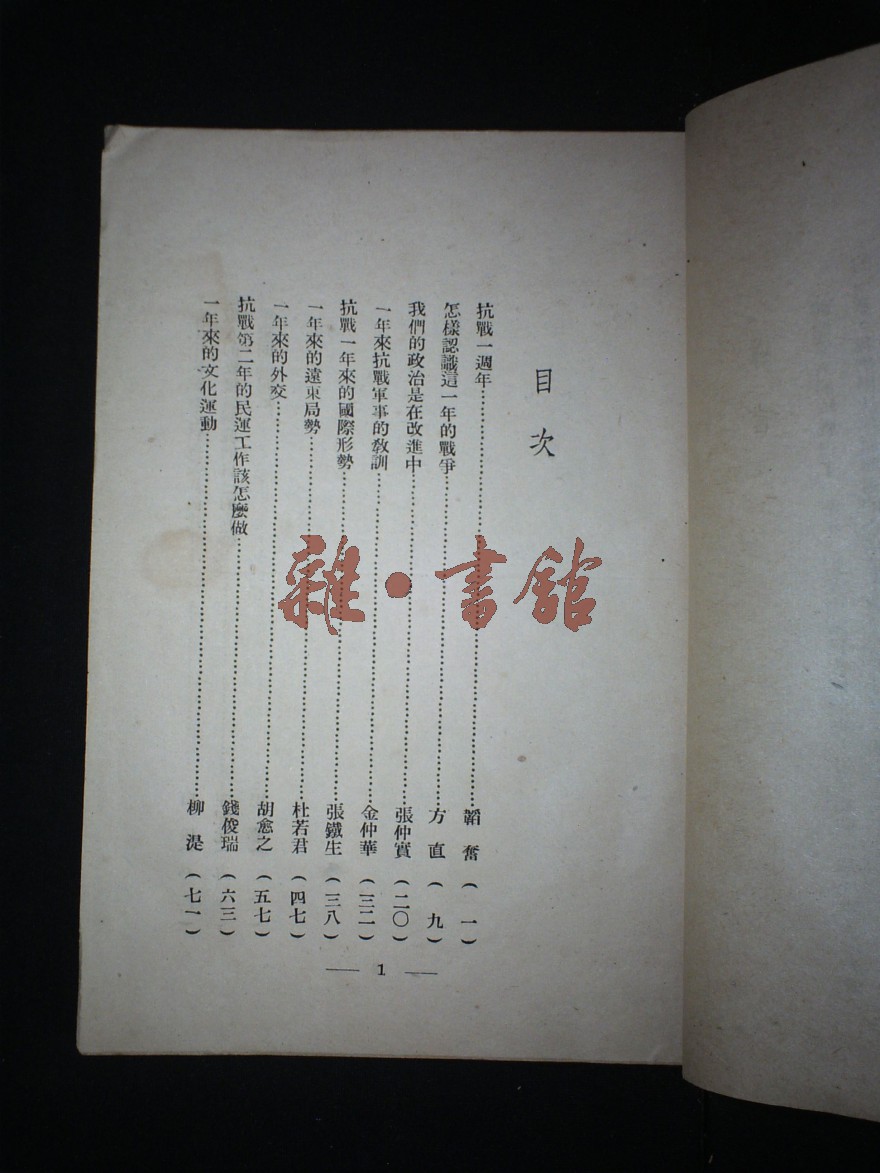 目次
抗戰一週年……韜奮（一）
怎樣認識這一年的戰爭……方直（九）
我們的政治是在改進中……張仲實（二〇）
一年來抗戰軍事的教訓……金仲華（三二）
抗戰一年來的國際形勢……張鐵生（三八）
一年來的遠東局勢……杜若君（四七）
一年來的外交……胡愈之（五七）
抗戰第二年的民運工作該怎麼做……錢俊瑞（六三）
一年來的文化運動……柳湜（七一）
— 1 —
雜·書館